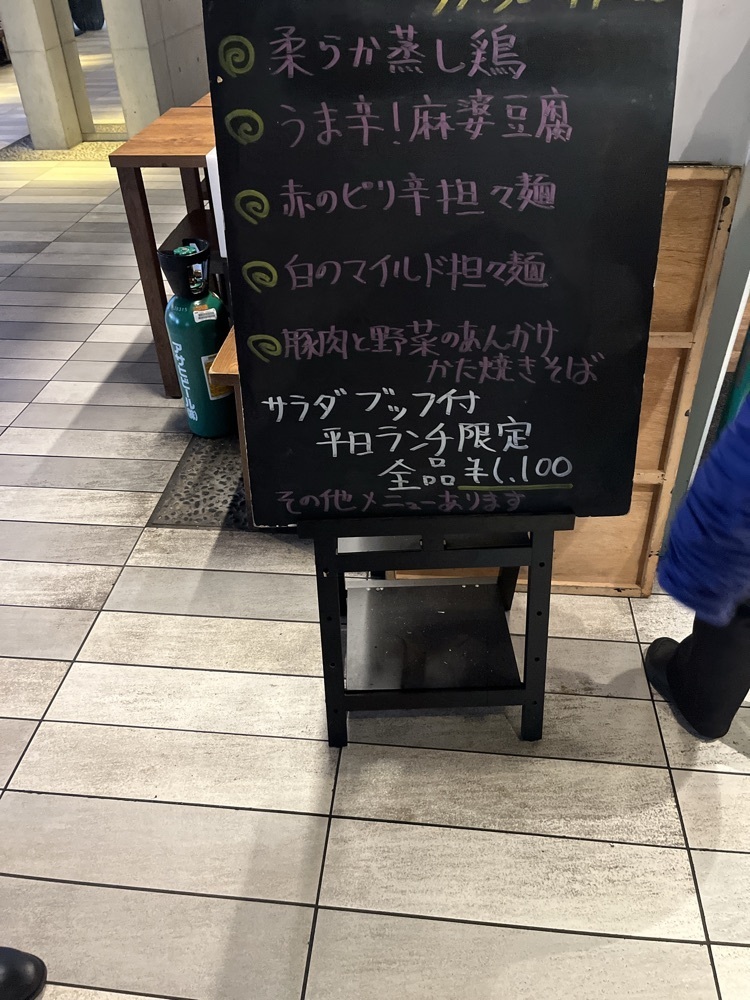 柔らか蒸し鶏
うま辛!麻婆豆腐
赤のピリ辛担々麺
白のマイルド担々麺
豚肉と野菜のあんかけ
かた焼きそば
サラダブッフ付
平日ランチ限定
全品¥1,100
その他メニューあります
アサヒビール